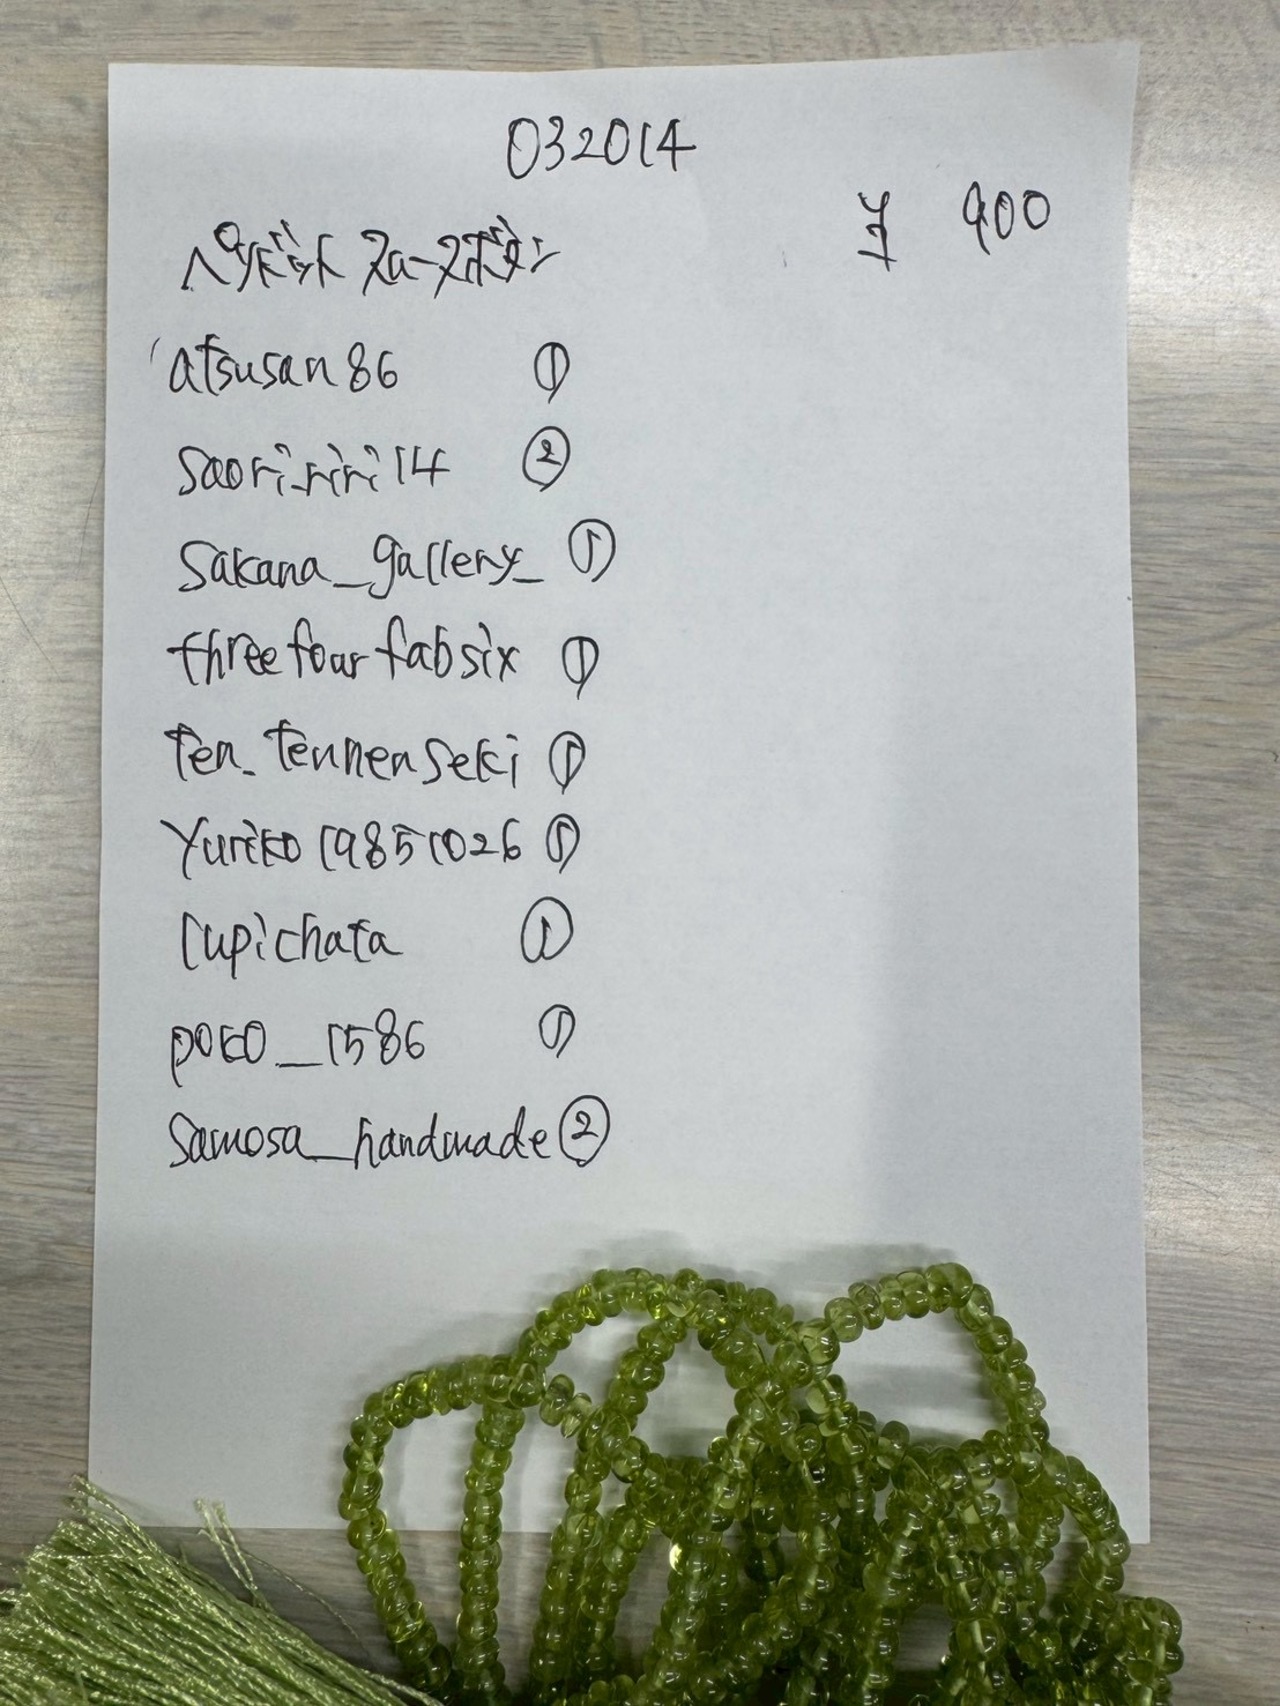 032014
¥ 900
ペリドット スローズボタン
atsusan86 ①
saori_riri14 ②
sakana_gallery_ ①
threefourfabsix ①
ten_tennenseki ①
Yuriko19851026 ①
rupichata ①
poko_1586 ①
samosa_handmade ②